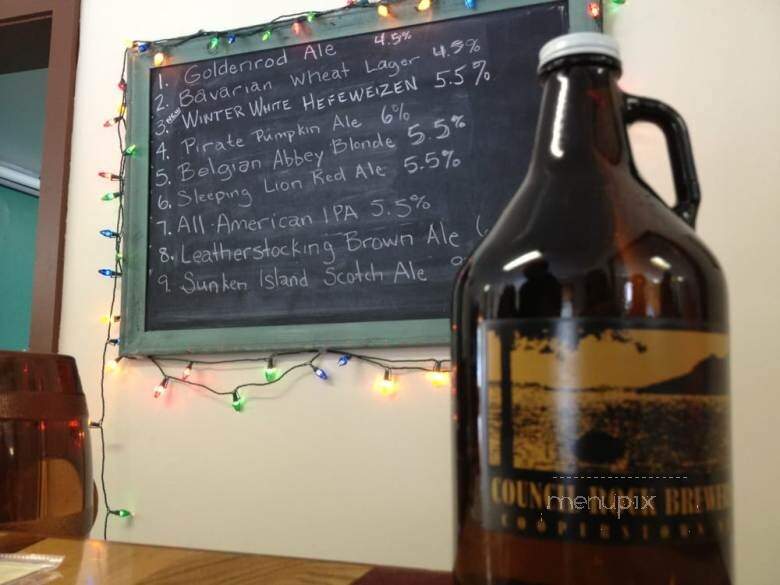 1. Goldenrod Ale 4.5%
2. Bavarian Wheat Lager 4.5%
3. WINTER WHITE HEFEWEIZEN 5.5%
4. Pirate Pumpkin Ale 6%
5. Belgian Abbey Blonde 5.5%
6. Sleeping Lion Red Ale 5.5%
7. All-American IPA 5.5%
8. Leatherstocking Brown Ale
9. Sunken Island Scotch Ale
COUNCIL ROCK
menupix